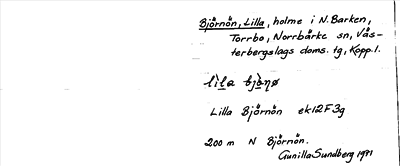 Björnön, Lilla, holme i N. Barken,
Torrbo, Norrbärke sn, Väs-
terbergslags doms. tg, Kopp. l.
lìla bjò̱nø
Lilla Björnön ek 12F3g
200 m N Björnön.
Gunilla Sundberg 1971